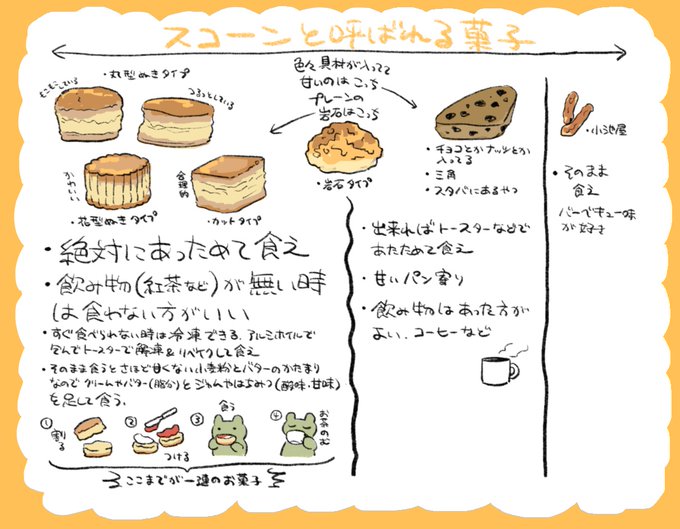 スコーンと呼ばれる菓子
・丸型ぬきタイプ
むこむこしている
つるっとしている
かわいい
・花型ぬきタイプ
合理的
・カットタイプ
色々具材が入ってて
甘いのはこっち
プレーンの
岩石はこっち
・岩石タイプ
・チョコとかナッツとか
入ってる
・三角
・スタバにあるやつ
・小池屋
・そのまま
食え
バーベキュー味
が好き
・絶対にあっためて食え
・飲み物(紅茶など)が無い時
は食わない方がいい
・すぐ食べられない時は冷凍できる。アルミホイルで
包んでトースターで解凍&リベイクして食え
・そのまま食うとさほど甘くない小麦粉とバターのかたまり
なので クリームやバター(脂分)とジャムやはちみつ(酸味・甘味)
を足して食う。
① 割る
② つける
③ 食う
④ お茶のむ
ここまでが一連のお菓子
・出来ればトースターなどで
あたためて食え
・甘いパン寄り
・飲み物はあった方が
よい。コーヒーなど